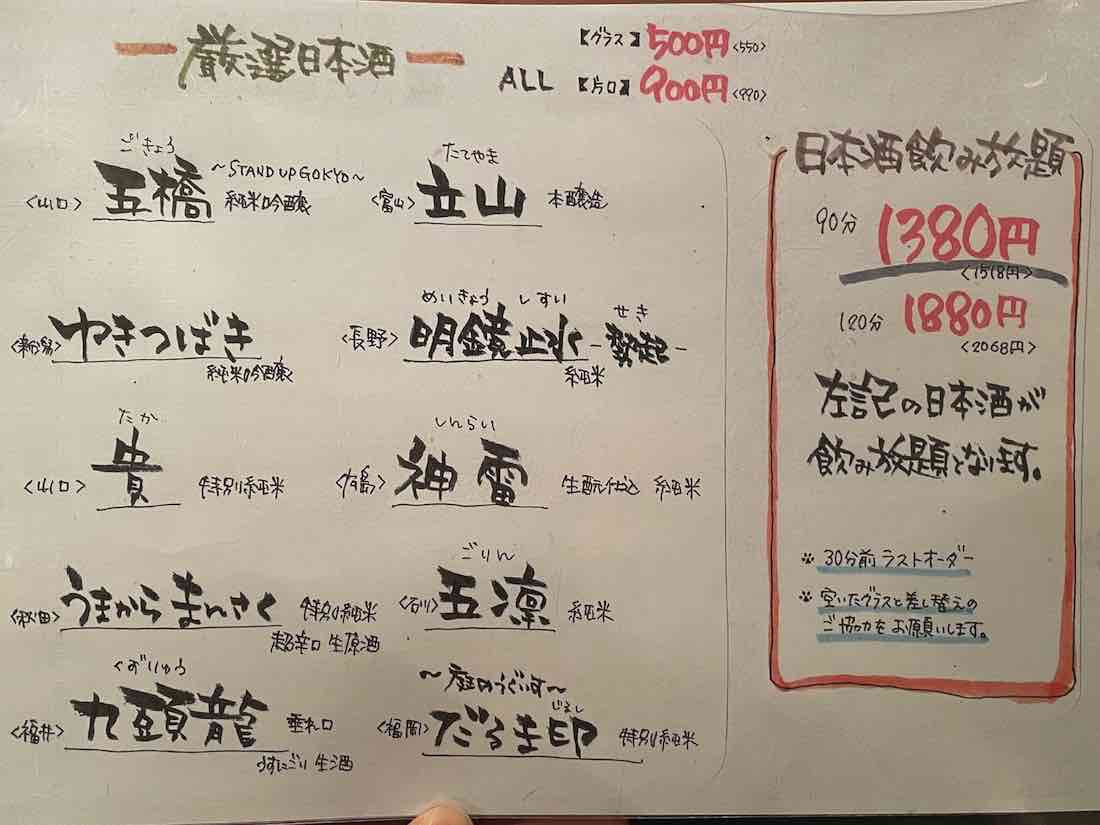 厳選日本酒
ALL
【グラス】500円<550>
【片口】900円<990>
ごきょう
<山口> 五橋 ~STAND UP GOKYO~ 純米吟醸
たてやま
<富山> 立山 本醸造
<新潟> ゆきつばき
純米吟醸
めいきょう しすい せき
<長野> 明鏡止水
純米
たか
<山口> 貴 特別純米
しんらい
<広島> 神雷 生酛仕込 純米
<秋田> うまからまんさく 特別純米
超辛口 生原酒
ごりん
<石川> 五凛 純米
くずりゅう
<福井> 九頭龍 垂れ口
うすにごり 生酒
~庭のうぐいす~
じるし
<福岡> だるま印 特別純米
日本酒飲み放題
90分 1380円
<1518円>
120分 1880円
<2068円>
左記の日本酒が
飲み放題となります。
※ 30分前 ラストオーダー
※ 空いたグラスと差し替えの
ご協力をお願いします。